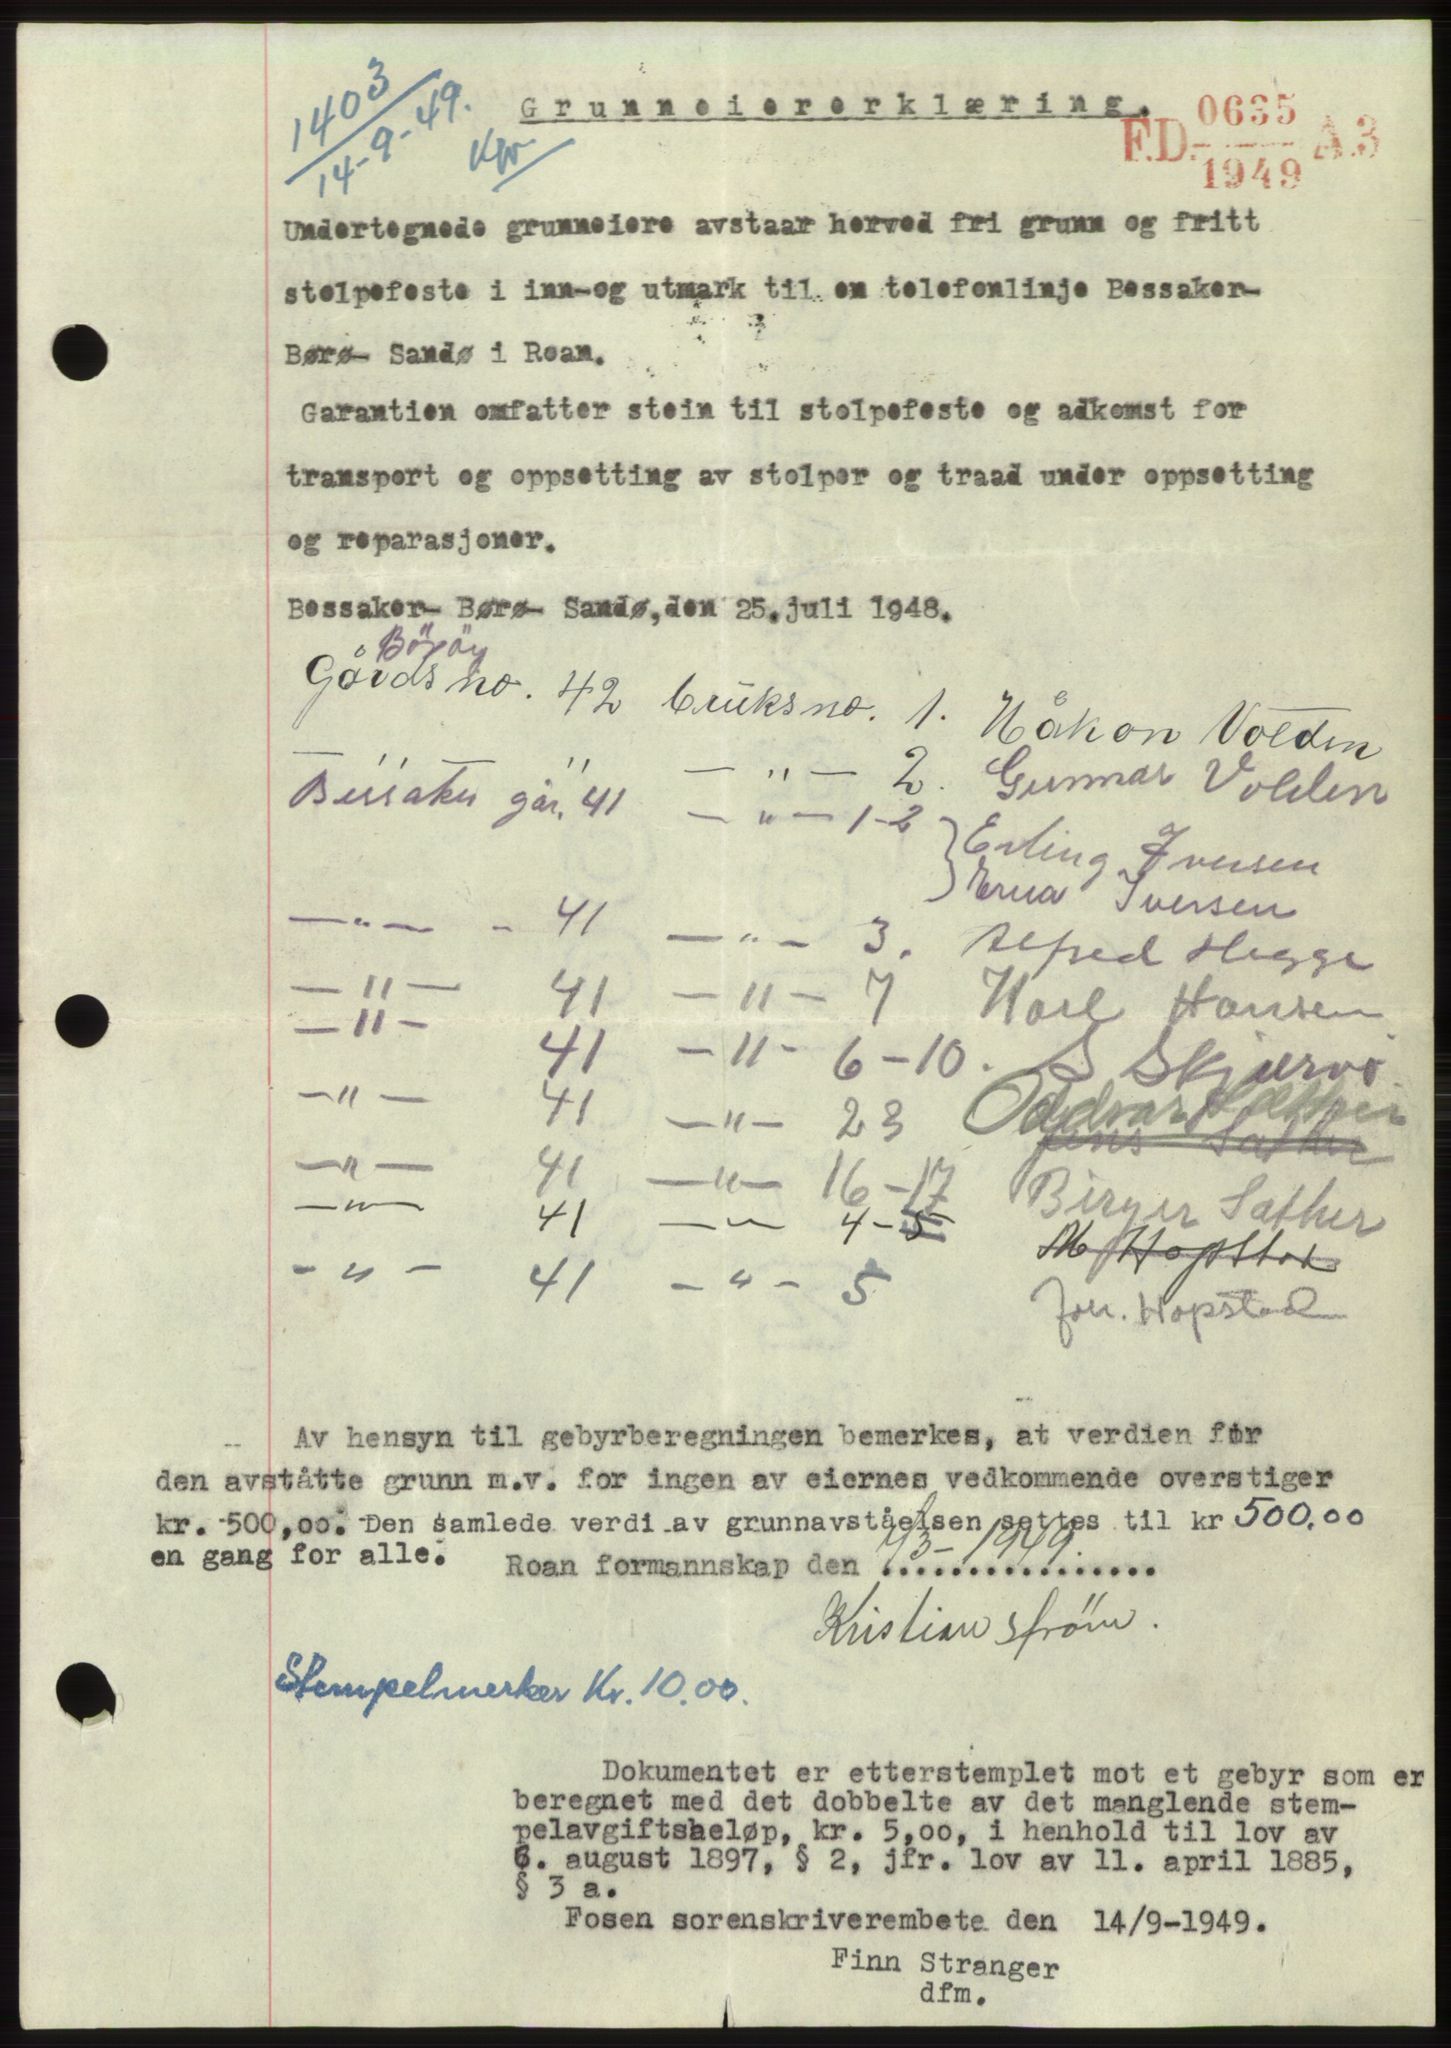 1403
14-9-49.
Kpr
Grunneiererklæring.
F.D. 0635 A.3
1949
Undertegnede grunneiere avstaar herved fri grunn og fritt
stolpefeste i inn-og utmark til en telefonlinje Bessaker-
Børø- Sandø i Roan.
Garantien omfatter stein til stolpefeste og adkomst for
transport og oppsetting av stolper og traad under oppsetting
og reparasjoner.
Bessaker- Børø- Sandø, den 25.juli 1948.
Böröy
Gårds no. 42 bruksno. 1. Håkon Volden
— " " — " — 2. Gunnar Volden
Bessaker går, 41 — " — 1-2 Erling Iversen
Erna Iversen
— " — - 41 — " — 3. Alfred Hegge
— " — 41 — " — 7 Karl Hansen
— " — 41 — " — 6-10. S Skjærvø
— " — 41 — " — 23 Oddvar Sæther
Jens Sæther
— " — 41 — " — 16-17 Birger Sæther
— " — 41 — " — 4-5 M Hopstad
— " — 41 — " — 5 Joh. Hopstad
Av hensyn til gebyrberegningen bemerkes, at verdien før
den avståtte grunn m.v. for ingen av eiernes vedkommende overstiger
kr. 500,oo. Den samlede verdi av grunnavståelsen settes til kr 500.00
en gang for alle.
Roan formannskap den 7/3-1949.
Kristian Strøm.
Stempelmerker Kr. 10.00.
Dokumentet er etterstemplet mot et gebyr som er
beregnet med det dobbelte av det manglende stem-
pelavgiftsbeløp, kr. 5,oo, i henhold til lov av
6. august 1897, § 2, jfr. lov av 11. april 1885,
§ 3 a.
Fosen sorenskriverembete den 14/9-1949.
Finn Stranger
dfm.